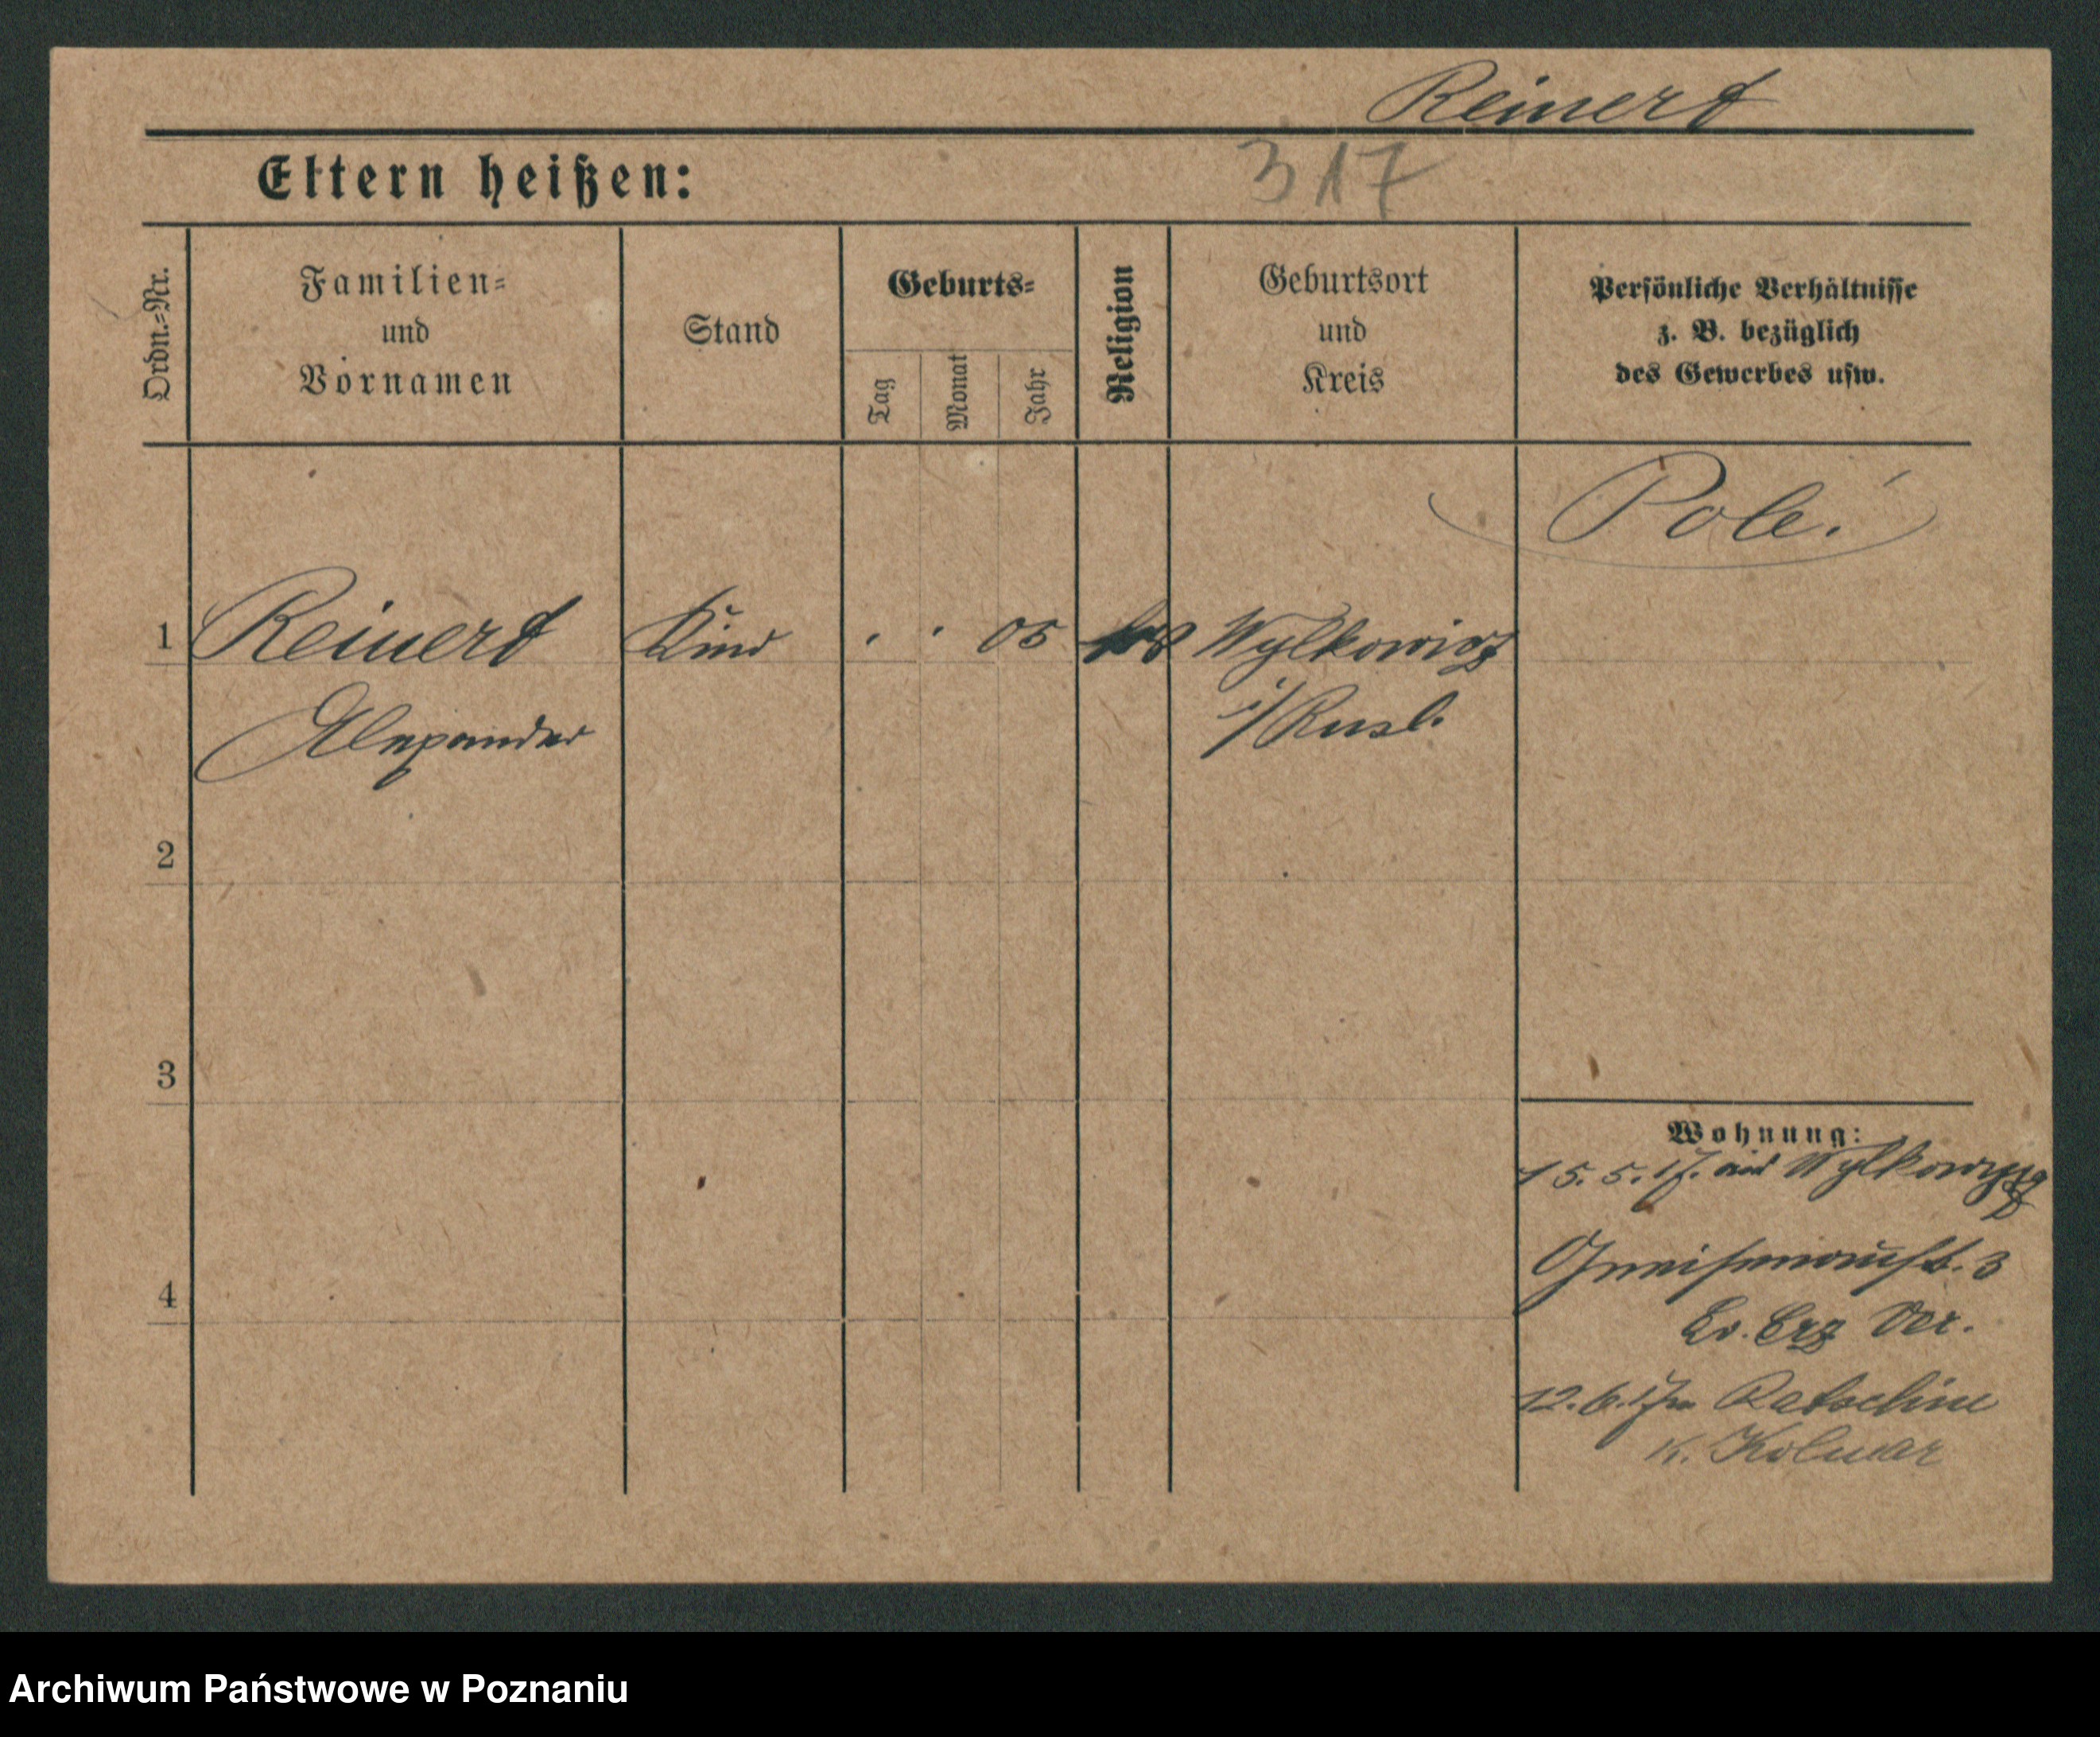 Reinert
Eltern heißen:
317
Ordn.=Nr.
Familien=
und
Vornamen
Stand
Geburts=
Tag
Monat
Jahr
Religion
Geburtsort
und
Kreis
Persönliche Verhältnisse
z. B. bezüglich
des Gewerbes usw.
Pole.
1 Reinert Kind 05 Wylkowicz
Alexander i/Rusl.
2
3
4
Wohnung:
15.5.17. aus
Gneisenaust. 3
Ev. Erz Ver.
12.6.17 Ratschin
K. Kolmar
Archiwum Państwowe w Poznaniu